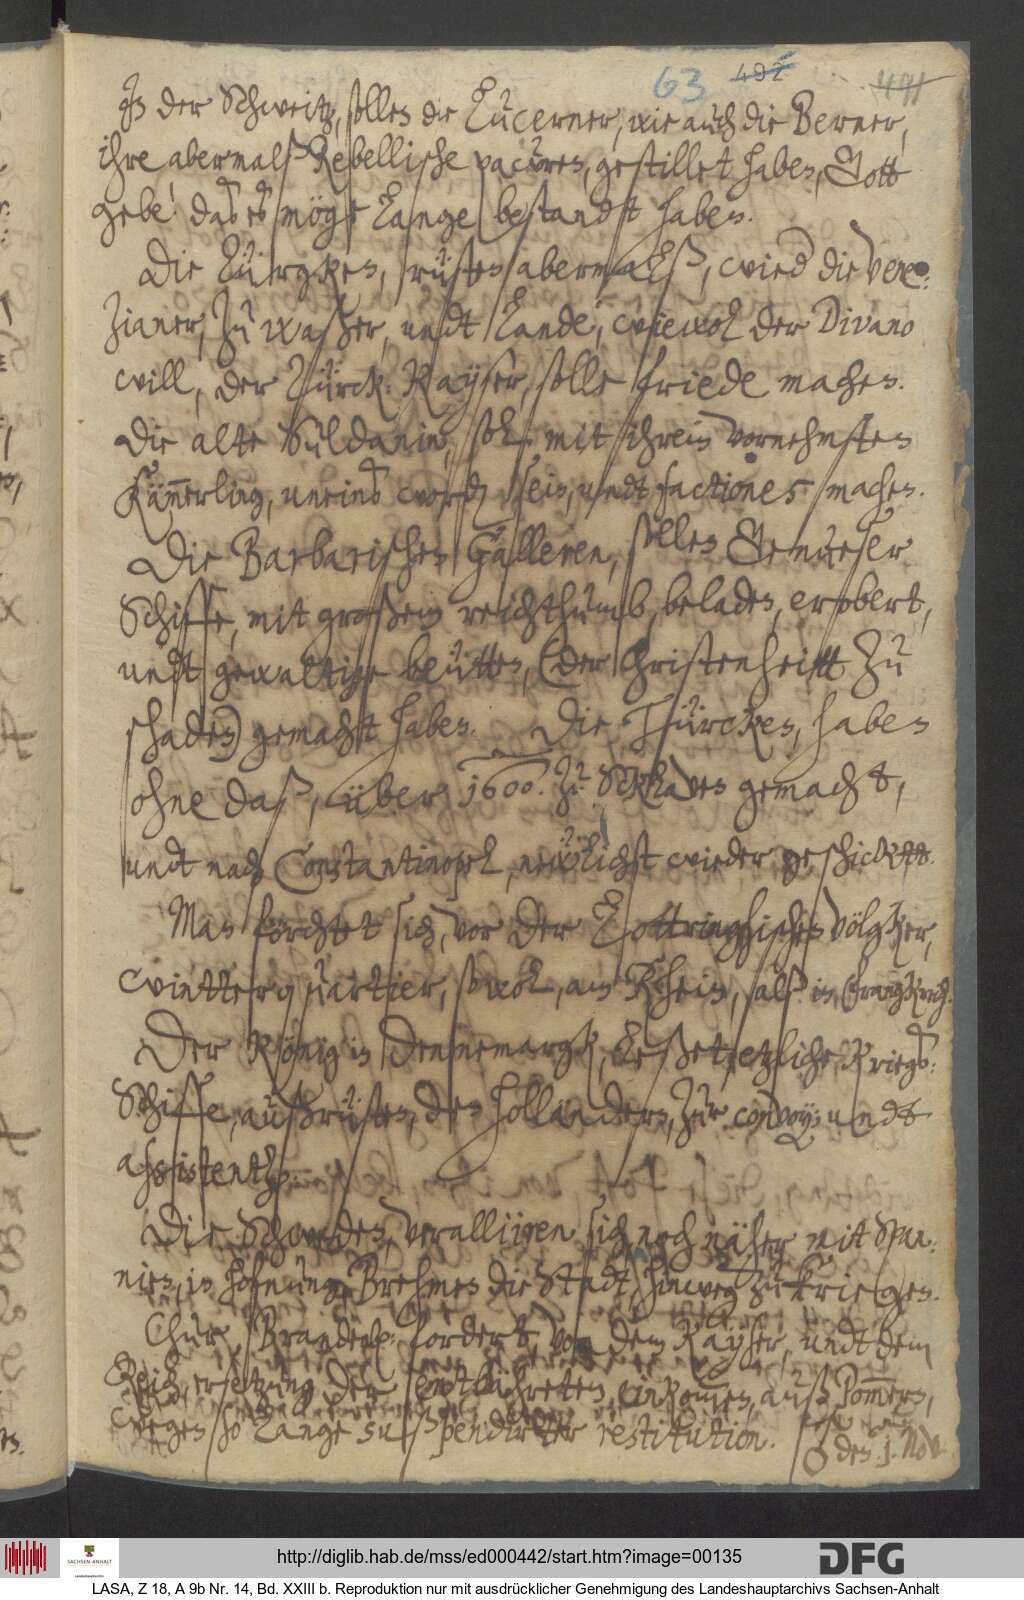 63 492 491
In der Schweitz, sollen die Lucerner, wie auch die Berner,
ihre abermalß Rebellische pawren, gestillet haben, Gott
gebe! daß es möge lange bestandt haben.
Die Türgken, rüsten abermalß, wied die Vene¬
zianer, zu waßer, undt lande, wiewol der Divano
will, der Türck: Kayser, solle friede machen.
Die alte Suldanin, soll mit ihrem vornehmsten
Kämmerling, uneins worden sein, undt factiones machen.
Die Barbarischen Galleren, sollen Genueser
Schiffe, mit großem reichthumb, beladen, erobert,
undt gewaltige beütten, (der Christenheitt zu
schaden) gemacht haben. Die Türcken, haben
ohne daß, über 1600. zu Sklaven gemacht,
undt nach Constantinopel, newlichst wieder geschicktt.
Man förchtet sich, vor der Lottringischen völgker,
winterquartier, sowol, am Rhein, alß in Frangkreich.
Der König in Dennemargk, leßet etzliche Kriegs¬
Schiffe, außrüsten, den Holländern, zur convoy: undt
assistentz.
Die Schweden, veralliiren sich noch näher mit Span¬
nien, in hofnung Brehmen die Stadt, hinweg zu kriegen.
Chur Brandenb: fordert, von dem Kayser, undt dem
Reich, ersetzung der entbehreten, einkommen, auß Pommern,
wegen so lange suspendirter restitution.
den .1. Nov
http://diglib.hab.de/mss/ed000442/start.htm?image=00135
SACHSEN-ANHALT
DFG
LASA, Z 18, A 9b Nr. 14, Bd. XXIII b. Reproduktion nur mit ausdrücklicher Genehmigung des Landeshauptarchivs Sachsen-Anhalt